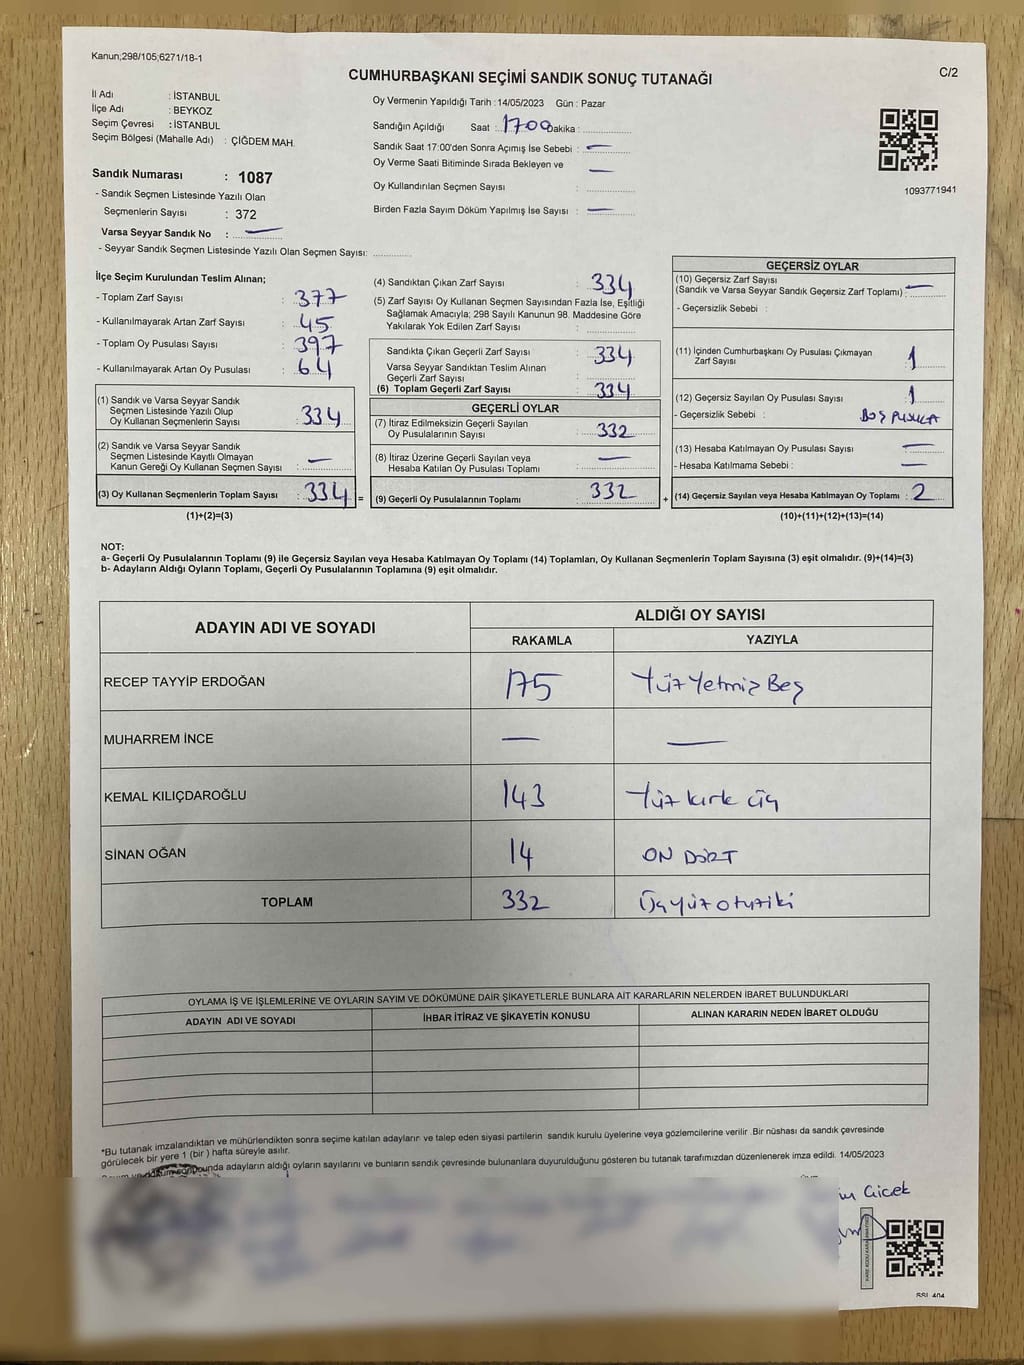 Kanun;298/105;6271/18-1
C/2
CUMHURBAŞKANI SEÇİMİ SANDIK SONUÇ TUTANAĞI
İl Adı : İSTANBUL
İlçe Adı : BEYKOZ
Seçim Çevresi : İSTANBUL
Seçim Bölgesi (Mahalle Adı) : ÇİĞDEM MAH.
Sandık Numarası : 1087
- Sandık Seçmen Listesinde Yazılı Olan
Seçmenlerin Sayısı : 372
Varsa Seyyar Sandık No : —
- Seyyar Sandık Seçmen Listesinde Yazılı Olan Seçmen Sayısı:
Oy Vermenin Yapıldığı Tarih : 14/05/2023 Gün : Pazar
Sandığın Açıldığı Saat : 1700 Dakika :
Sandık Saat 17:00'den Sonra Açımış İse Sebebi : —
Oy Verme Saati Bitiminde Sırada Bekleyen ve —
Oy Kullandırılan Seçmen Sayısı :
Birden Fazla Sayım Döküm Yapılmış İse Sayısı : —
1093771941
İlçe Seçim Kurulundan Teslim Alınan;
- Toplam Zarf Sayısı : 377
- Kullanılmayarak Artan Zarf Sayısı : 45
- Toplam Oy Pusulası Sayısı : 397
- Kullanılmayarak Artan Oy Pusulası : 64
(1) Sandık ve Varsa Seyyar Sandık
Seçmen Listesinde Yazılı Olup
Oy Kullanan Seçmenlerin Sayısı : 334
(2) Sandık ve Varsa Seyyar Sandık
Seçmen Listesinde Kayıtlı Olmayan
Kanun Gereği Oy Kullanan Seçmen Sayısı : —
(3) Oy Kullanan Seçmenlerin Toplam Sayısı : 334 =
(1)+(2)=(3)
(4) Sandıktan Çıkan Zarf Sayısı : 334
(5) Zarf Sayısı Oy Kullanan Seçmen Sayısından Fazla İse, Eşitliği
Sağlamak Amacıyla; 298 Sayılı Kanunun 98. Maddesine Göre
Yakılarak Yok Edilen Zarf Sayısı :
Sandıkta Çıkan Geçerli Zarf Sayısı : 334
Varsa Seyyar Sandıktan Teslim Alınan
Geçerli Zarf Sayısı :
(6) Toplam Geçerli Zarf Sayısı : 334
GEÇERLİ OYLAR
(7) İtiraz Edilmeksizin Geçerli Sayılan
Oy Pusulalarının Sayısı : 332
(8) İtiraz Üzerine Geçerli Sayılan veya
Hesaba Katılan Oy Pusulası Toplamı : —
(9) Geçerli Oy Pusulalarının Toplamı : 332 +
GEÇERSİZ OYLAR
(10) Geçersiz Zarf Sayısı
(Sandık ve Varsa Seyyar Sandık Geçersiz Zarf Toplamı) : —
- Geçersizlik Sebebi :
(11) İçinden Cumhurbaşkanı Oy Pusulası Çıkmayan
Zarf Sayısı : 1
(12) Geçersiz Sayılan Oy Pusulası Sayısı : 1
- Geçersizlik Sebebi : BOŞ PUSULA
(13) Hesaba Katılmayan Oy Pusulası Sayısı : —
- Hesaba Katılmama Sebebi : —
(14) Geçersiz Sayılan veya Hesaba Katılmayan Oy Toplamı : 2
(10)+(11)+(12)+(13)=(14)
NOT:
a- Geçerli Oy Pusulalarının Toplamı (9) ile Geçersiz Sayılan veya Hesaba Katılmayan Oy Toplamı (14) Toplamları, Oy Kullanan Seçmenlerin Toplam Sayısına (3) eşit olmalıdır. (9)+(14)=(3)
b- Adayların Aldığı Oyların Toplamı, Geçerli Oy Pusulalarının Toplamına (9) eşit olmalıdır.
ADAYIN ADI VE SOYADI
ALDIĞI OY SAYISI
RAKAMLA YAZIYLA
RECEP TAYYİP ERDOĞAN 175 Yüz Yetmiş Beş
MUHARREM İNCE — —
KEMAL KILIÇDAROĞLU 143 Yüz kırk üç
SİNAN OĞAN 14 ON DÖRT
TOPLAM 332 Üçyüz otuziki
OYLAMA İŞ VE İŞLEMLERİNE VE OYLARIN SAYIM VE DÖKÜMÜNE DAİR ŞİKAYETLERLE BUNLARA AİT KARARLARIN NELERDEN İBARET BULUNDUKLARI
ADAYIN ADI VE SOYADI İHBAR İTİRAZ VE ŞİKAYETİN KONUSU ALINAN KARARIN NEDEN İBARET OLDUĞU
*Bu tutanak imzalandıktan ve mühürlendikten sonra seçime katılan adayların ve talep eden siyasi partilerin sandık kurulu üyelerine veya gözlemcilerine verilir .Bir nüshası da sandık çevresinde
görülecek bir yere 1 (bir ) hafta süreyle asılır.
sonunda adayların aldığı oyların sayılarını ve bunların sandık çevresinde bulunanlara duyurulduğunu gösteren bu tutanak tarafımızdan düzenlenerek imza edildi. 14/05/2023
Cicek